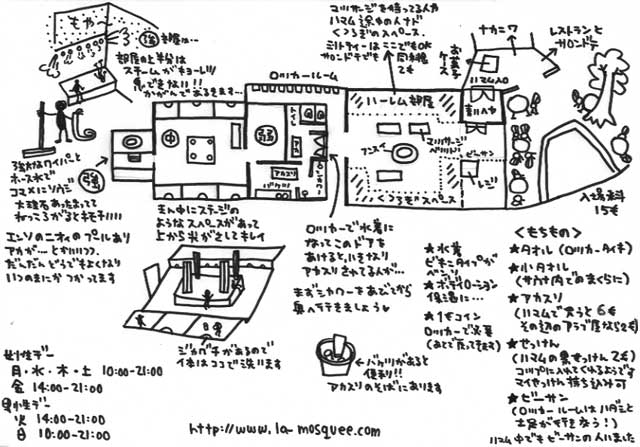 もや〜
強
部屋は…
部屋の上半分は
スチームがキョーレツ!
息できない!!
かがんであるきます…
強力なワイパーと
ホース水で
コマメにソウジ
大理石あったまってて
ねっころがるとキモチイイ!!
エンソのニオイのプールあり
アカが…とかいいつつ、
だんだんどうでもよくなり
いつのまにかつかってます
強
中
弱
トイレ
アカスリ
バケツ
ロッカールーム
まん中にステージの
ようなスペースがあって
上から光がさしてキレイ
ジャグチがあるので
体はココで洗います
マッサージを待ってる人や
ハマム途中の人など
くつろぎのスペース。
ミントティーはここでもOK
サロンドテでも 同料金
2€
ハーレム部屋
マッサージ
ベッド
くつろぎスペース
ナカニワ
お菓子
ケース
ハマム入口
レストランと
サロンドテ
ビーサン
レジ
入場料
15€
ロッカーで水着に
なってこのドアを
あけると、いきなり
アカスリされてる人が…
まずシャワーをあびてから
奥へ行きましょう
★水着
ビキニタイプが
ベンリ
★ボディローション
復活に…
★1€コイン
ロッカーで必要
(あとで戻ってきます)
←バケツがあると
便利!!
アカスリのそばにあります
<もちもの>
★タオル(ロッカータイキ)
★小タオル
(サウナ内でのまくらに)
★アカスリ
(ハマムで買うと6€
その辺のアラブ屋なら2€)
★せっけん
(ハマムの黒せっけん2€)
コップに入れてくれるようです
マイせっけん持ち込み可
★ビーサン
(ロッカールームはハダシと
土足が行きかう!)
ハマム中でもビーサンの人いました
女性デー
月・水・木・土 10:00-21:00
金 14:00-21:00
男性デー
火 14:00-21:00
日 10:00-21:00
http://www.la-mosquee.com